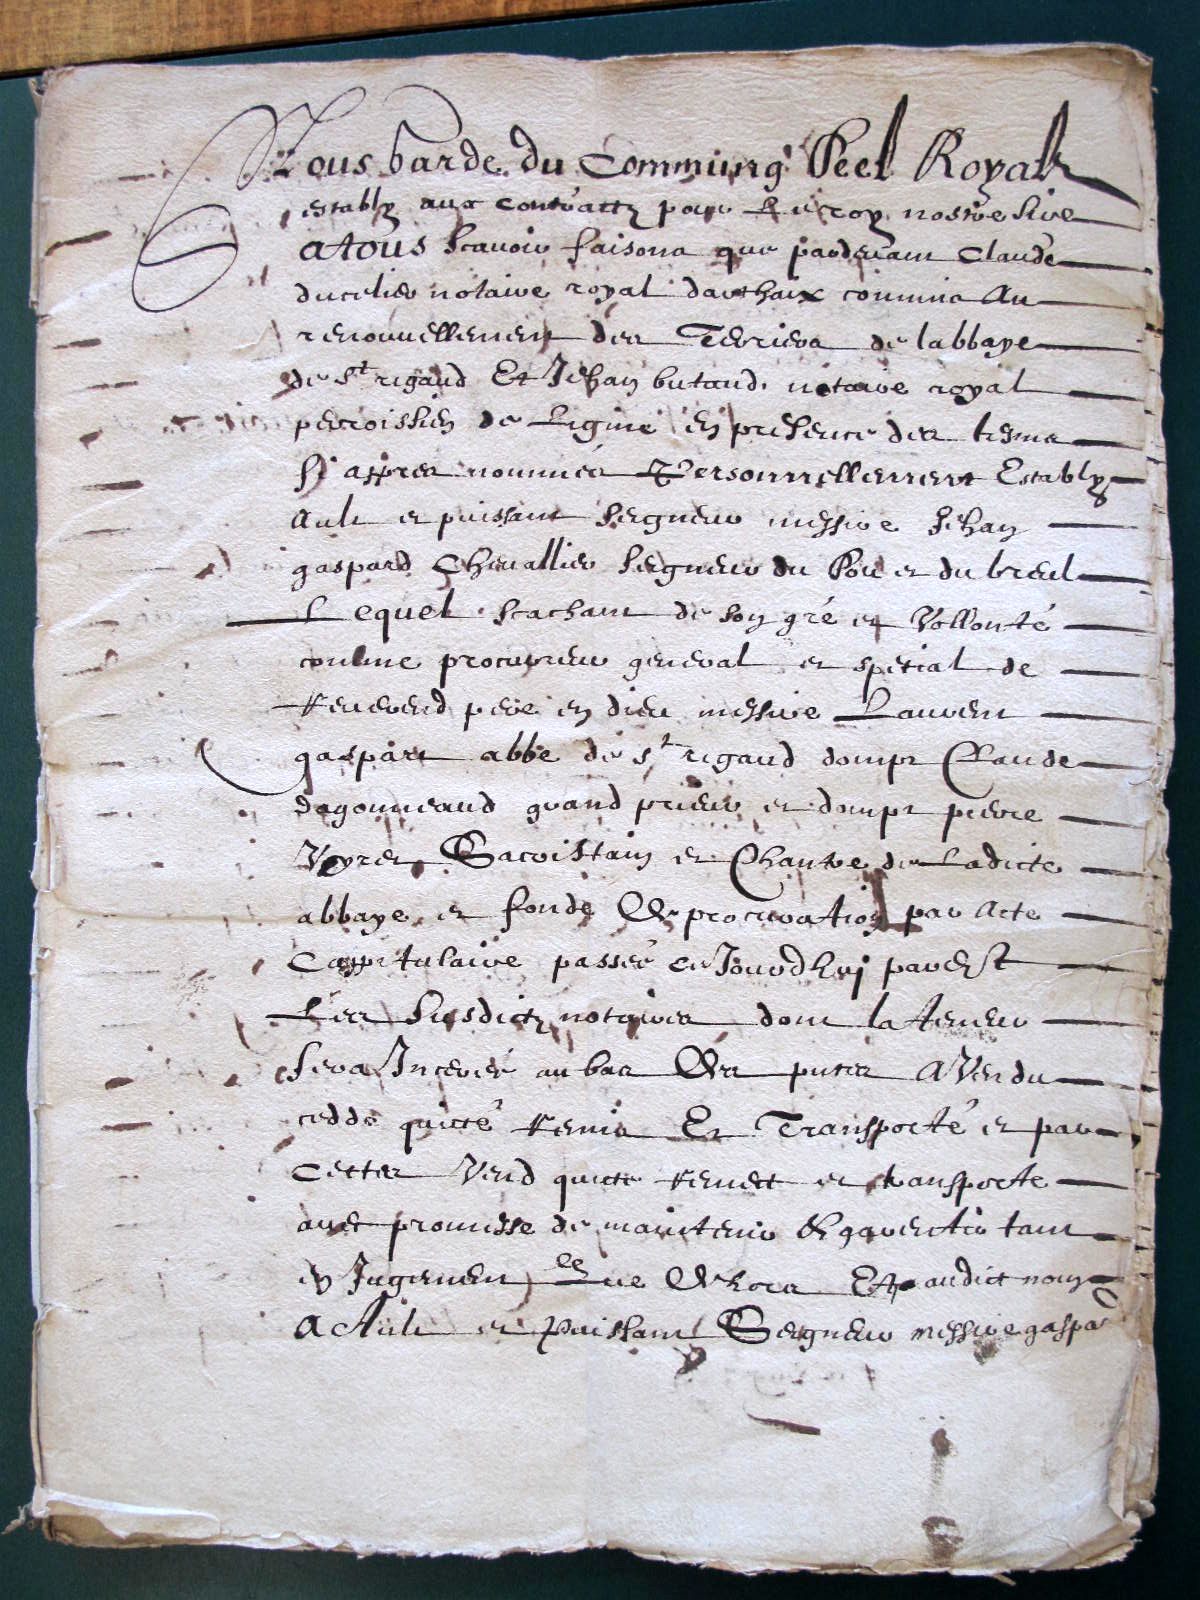 Nous garde du Commung Seel Royal
estably aux contractz pour Le roy nostre sire
atous scavoir faisons que pardevant Claude
ducelier notaire royal danthaix commis Au
renouvellement des Terriers de labbaye
de St rigaud Et Jehan butaud notaire royal
perroissien de Ligine en presence des tesms
sy appres nommes Personnellement Establyz
Ault et puissant seigneur messire Jehan
gaspard Chevallier seigneur du Sou et du breul
Lequel scachant de son gré et Vollonté
comme procureur general et spetial de
Reverend pere en dieu messire Laurent
gaspart abbe de St rigaud dompt Claude
dagonneaud grand prieur et dompt pierre
Veyret Sacristain et Chantre de Ladicte
abbaye et fonde De procuration par Acte
Cappitulaire passée ce Jourdhuj parvt
Les susdictz notaires dont la teneur
sera Inceree au bas Des pntes A Vendu
cedde quicté Remis Et Transporté et par
Cettes Vend quicte Remect et transporte
avec promesse de maintenir Et garentir tant
en Jugement que Dehors Et audict nom
A Ault et Puissant Seigneur messire gaspa